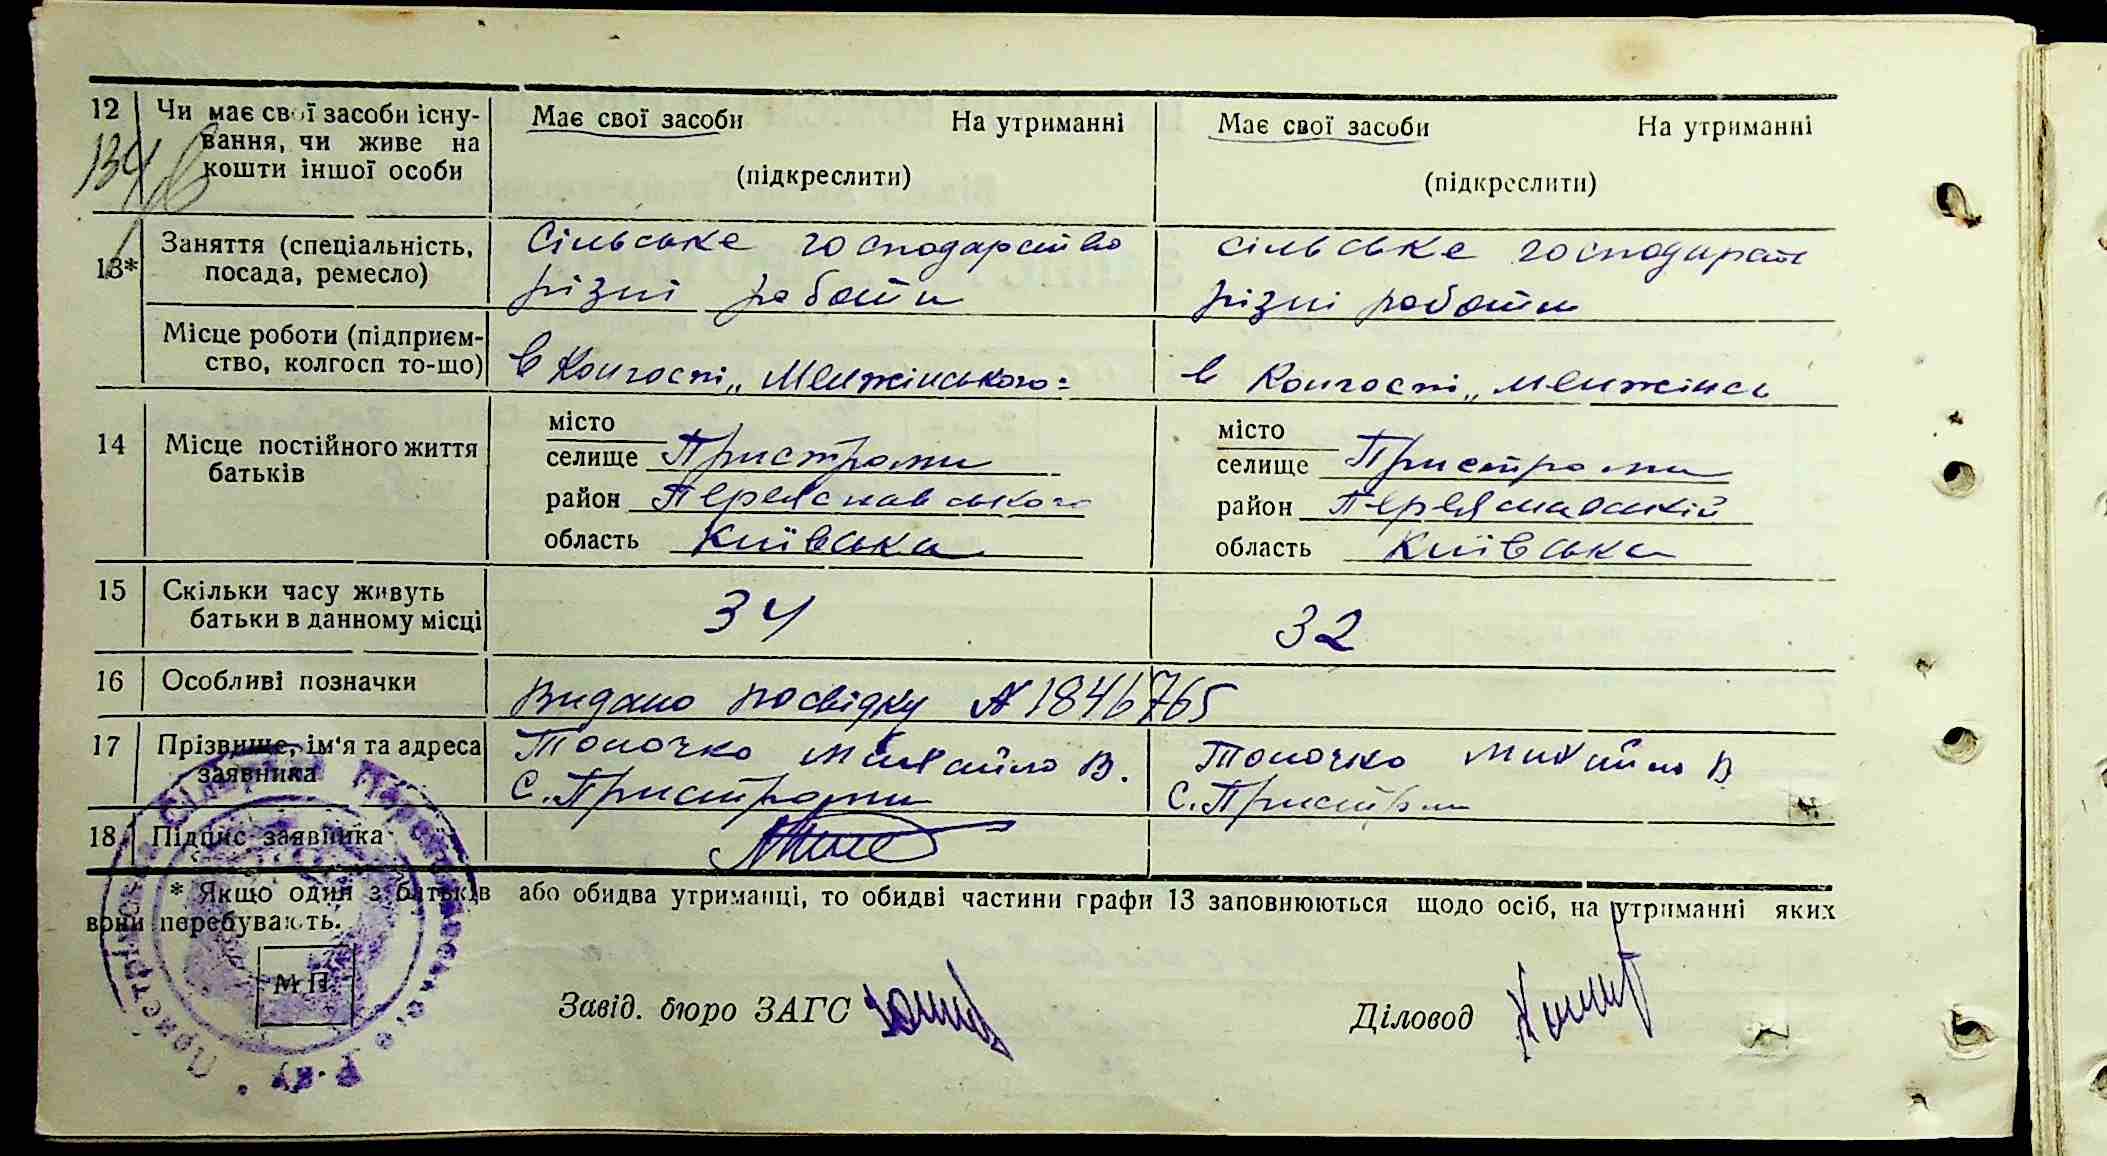 12 Чи має свої засоби існу- Має свої засоби На утриманні Має свої засоби На утриманні
вання, чи живе на
кошти іншої особи (підкреслити) (підкреслити)
134
13* Заняття (спеціальність, Сільське господарство сільське господарст
посада, ремесло) різні роботи різні роботи
Місце роботи (підприєм-
ство, колгосп то-що) в Колгоспі „Менжінського" в Колгоспі „Менжінсь
14 Місце постійного життя батьків
місто місто
селище Пристроми селище Пристроми
район Переяславського район Переяславський
область Київська область Київська
15 Скільки часу живуть
батьки в данному місці 34 32
16 Особливі позначки Видано посвідку № 1846765
17 Прізвище, ім'я та адреса Топочко Михайло В. Топочко Михайло В
заявника с. Пристроми с. Пристроми
18 Підпис заявника
* Якщо один з батьків або обидва утриманці, то обидві частини графи 13 заповнюються щодо осіб, на утриманні яких
вони перебувають.
М.П.
Завід. бюро ЗАГС Діловод